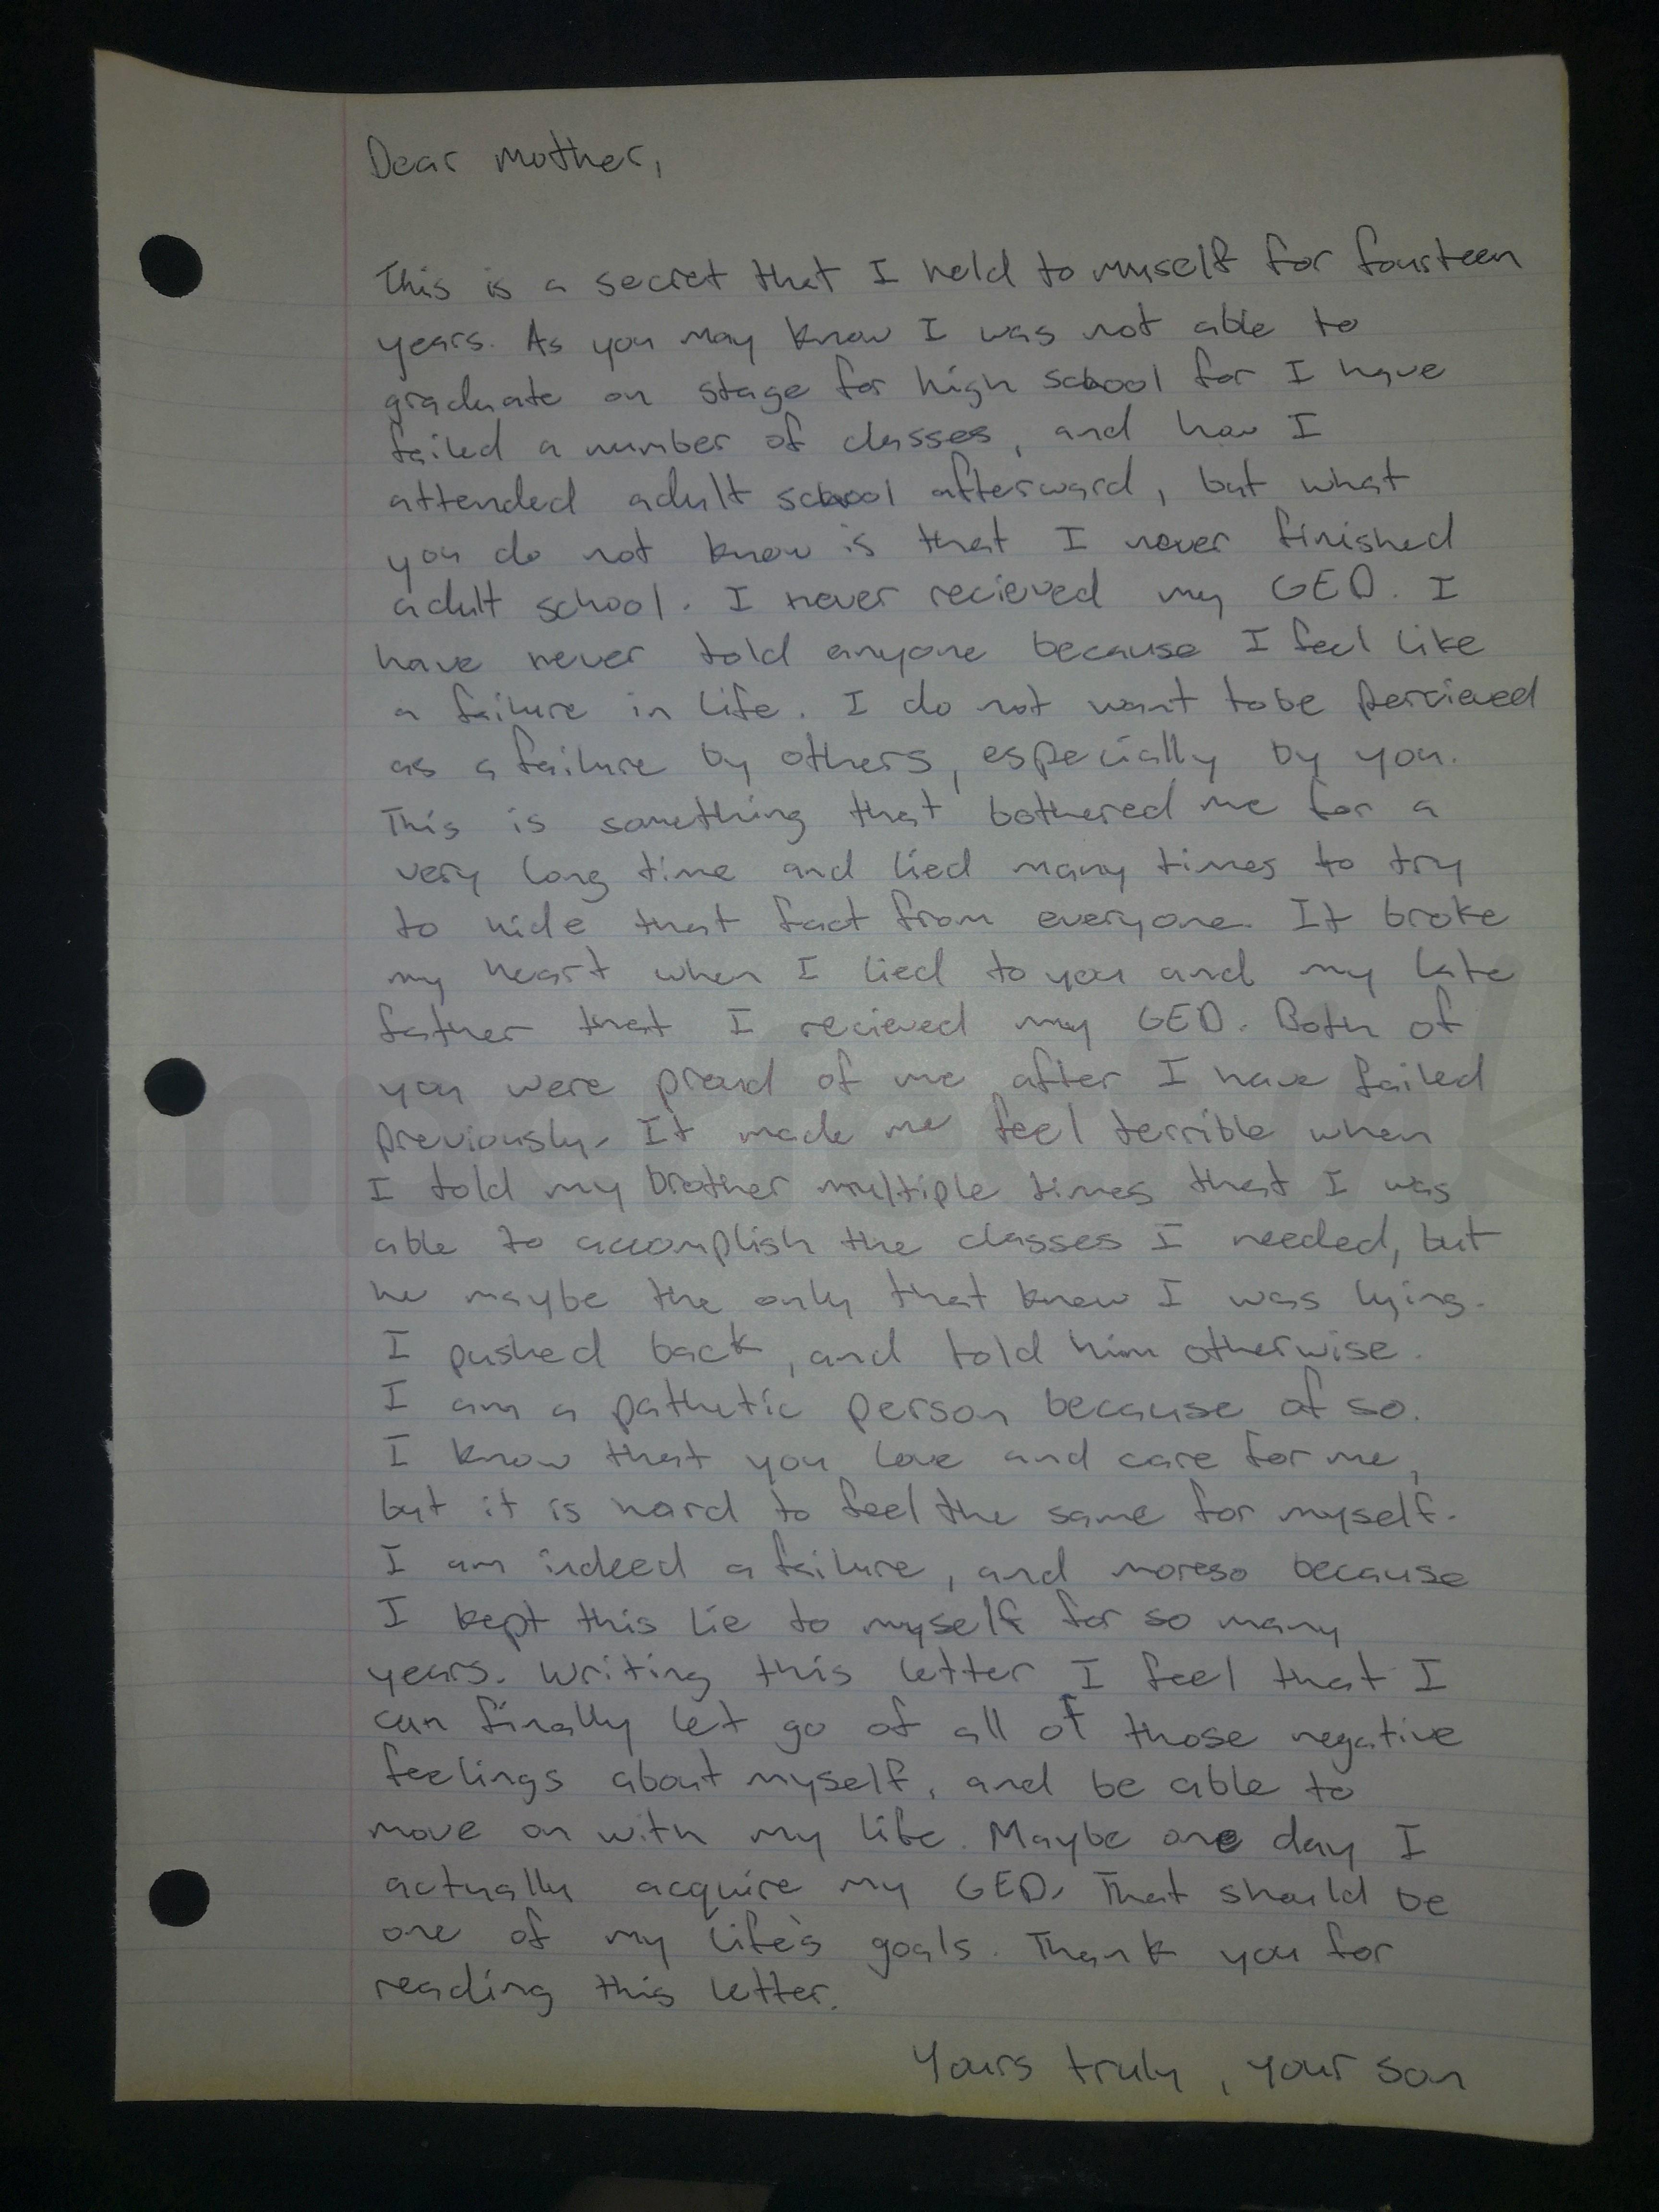 Dear Mother,
This is a secret that I held to myself for fourteen
years. As you may know I was not able to
graduate on stage for high school for I have
failed a number of classes, and how I
attended adult school afterward, but what
you do not know is that I never finished
adult school. I never recieved my GED. I
have never told anyone because I feel like
a failure in life. I do not want to be percieved
as a failure by others, especially by you.
This is something that bothered me for a
very long time and lied many times to try
to hide that fact from everyone. It broke
my heart when I lied to you and my late
father that I recieved my GED. Both of
you were proud of me after I have failed
previously. It made me feel terrible when
I told my brother multiple times that I was
able to accomplish the classes I needed, but
he maybe the only that knew I was lying.
I pushed back, and told him otherwise.
I am a pathetic person because of so.
I know that you love and care for me,
but it is hard to feel the same for myself.
I am indeed a failure, and moreso because
I kept this lie to myself for so many
years. Writing this letter I feel that I
can finally let go of all of those negative
feelings about myself, and be able to
move on with my life. Maybe one day I
actually acquire my GED. That should be
one of my life's goals. Thank you for
reading this letter.
Yours truly, your son